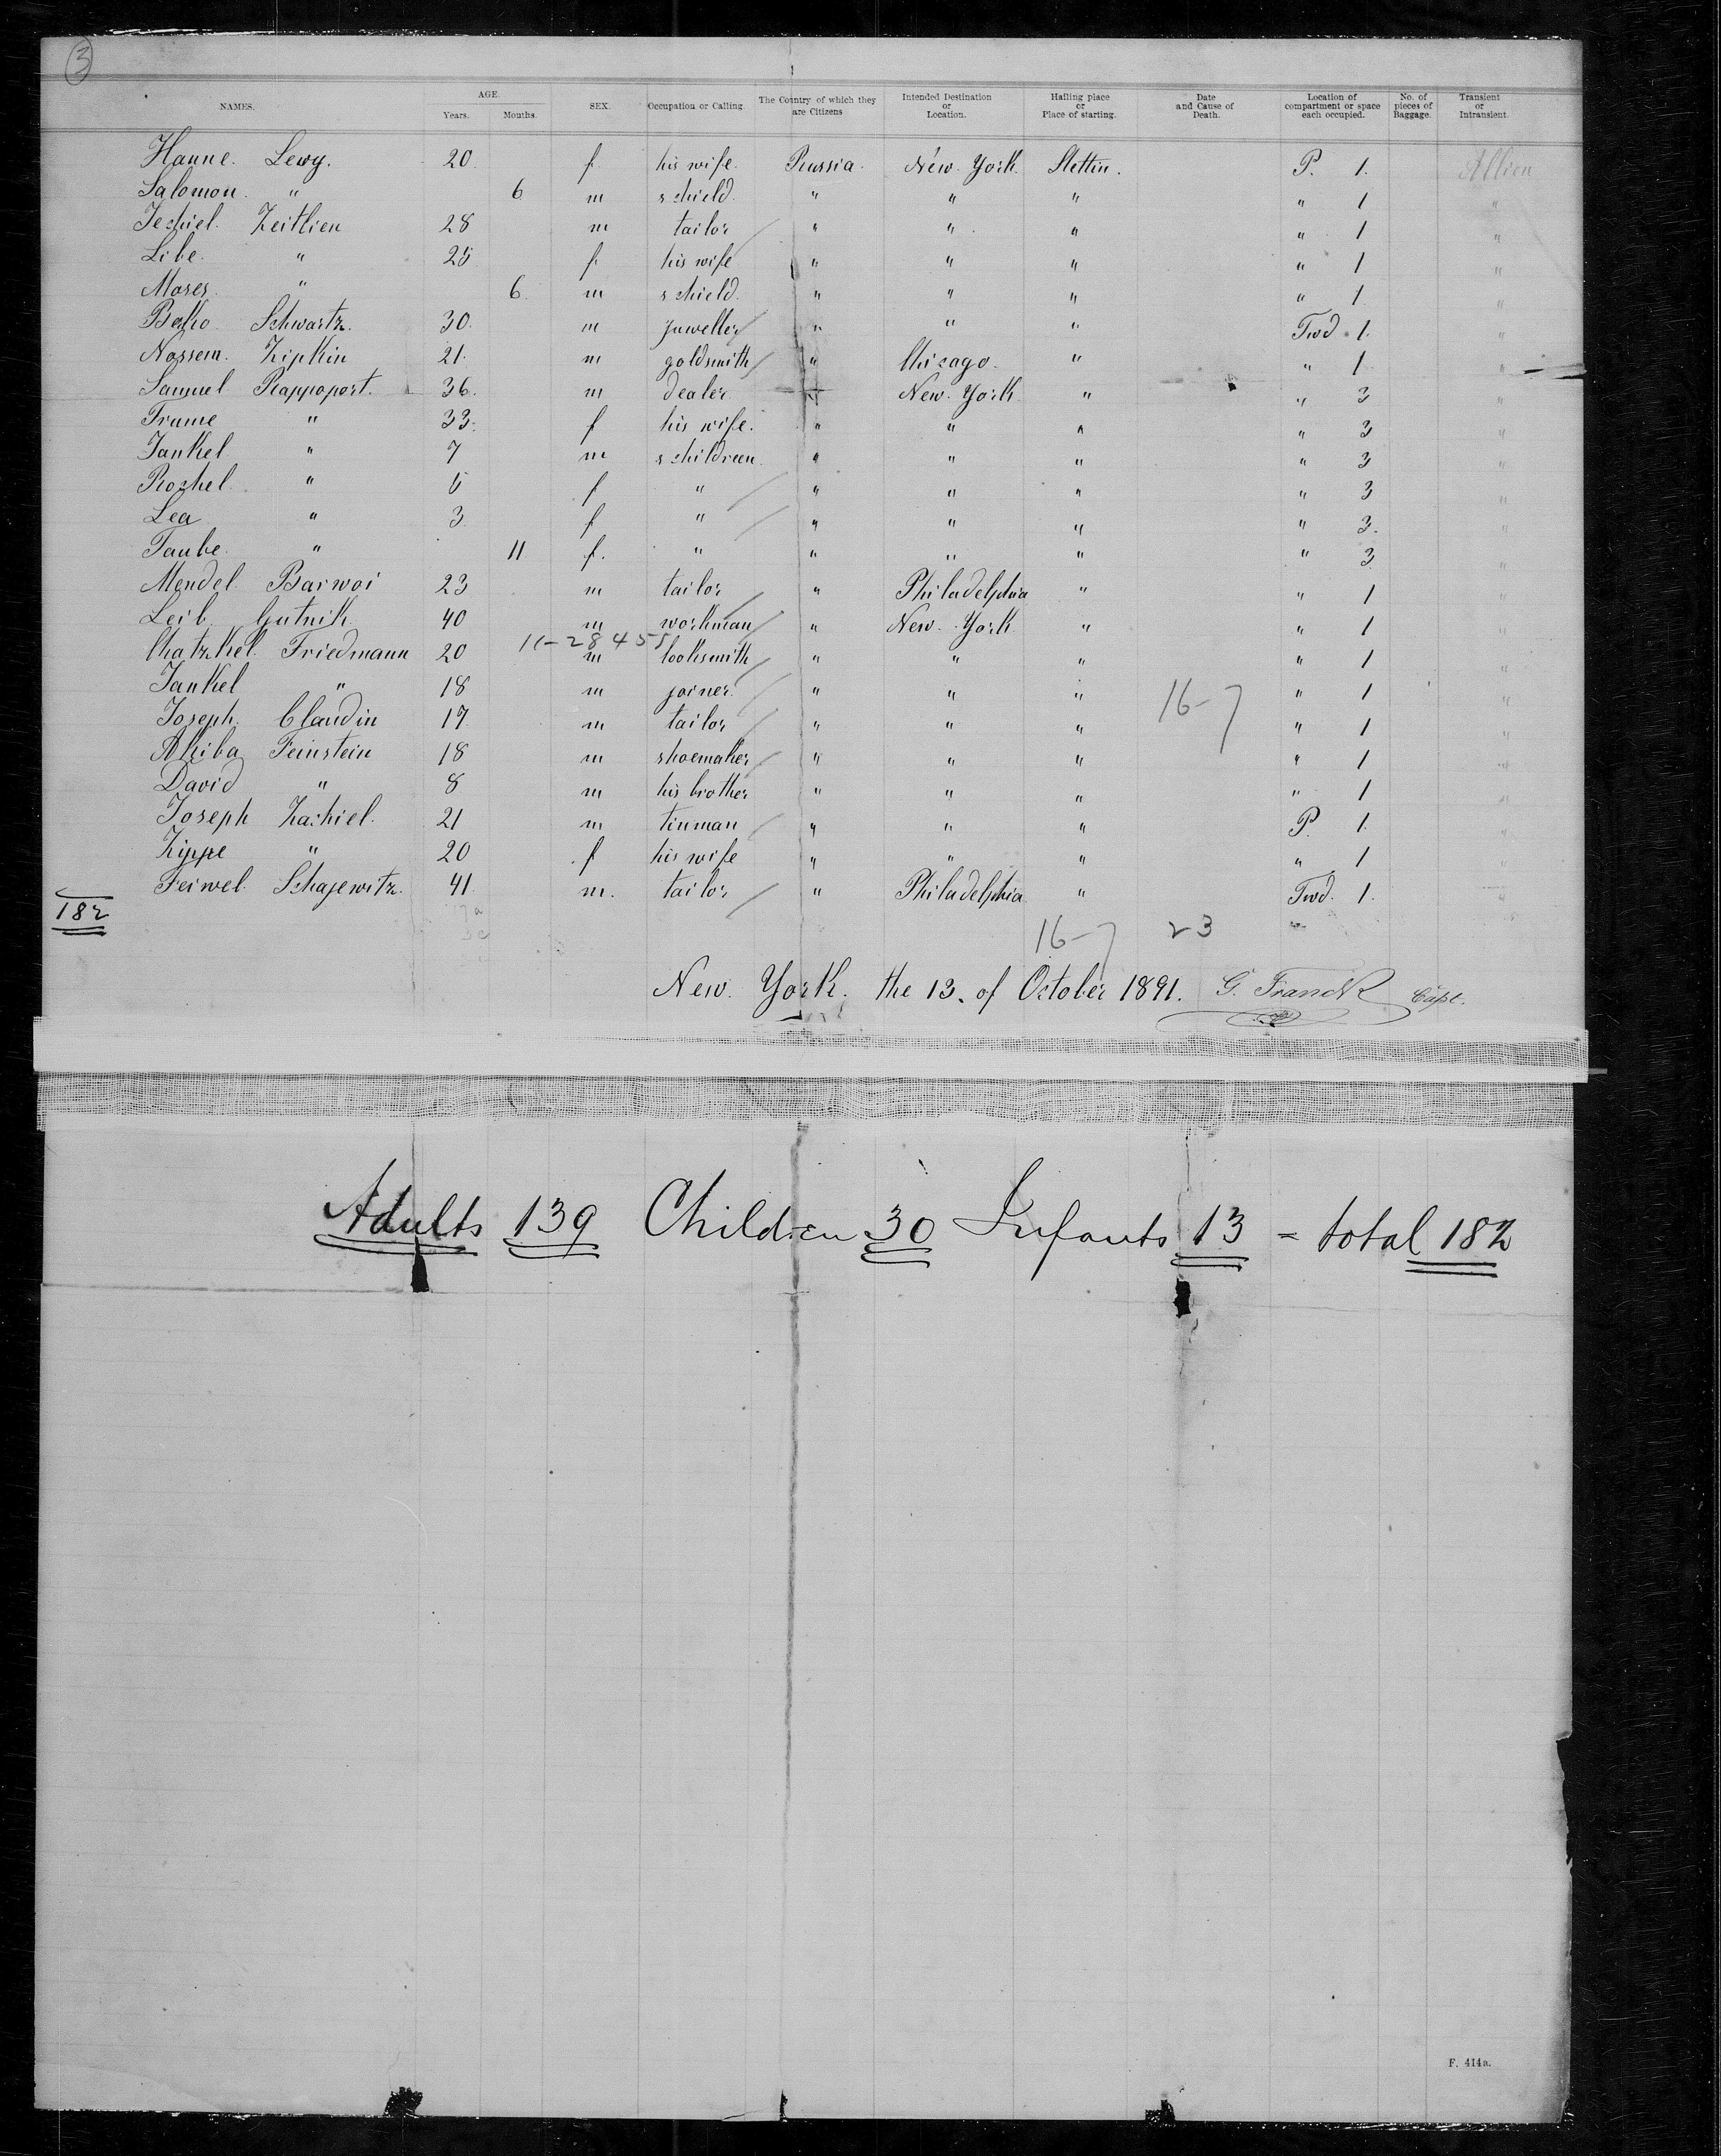 3
NAMES. AGE. Years. Months. SEX. Occupation or Calling. The Country of which they are Citizens Intended Destination or Location. Hailing place or Place of starting. Date and Cause of Death. Location of compartment or space each occupied. No. of pieces of Baggage. Transient or Intransient.
Hanne. Lewy. 20 f. his wife. Russia. New York. Stettin. P. 1. Allien
Salomon. " 6 m s child. " " " " 1 "
Jechiel. Zeitlien 28 m tailor " " " " 1 "
Libe. " 25 f. his wife " " " " 1 "
Moses. " 6. m s chield. " " " " 1 "
Schwartz. 30. m juweller " " " Twd. 1. "
Nossem. Zipkin 21. m goldsmith " Chicago. " " 1 "
Samuel Rappoport. 36. m dealer " New York " " 3 "
Frume " 33. f his wife. " " " " 3 "
Jankel. " 7 m s children. " " " " 3 "
Rochel. " f " " " " " 3 "
Lea " 3. f " " " " " 3. "
Taube. " 11 f. " " " " " 3 "
Mendel. Barwoi 23 m tailor " Philadelphia " " 1 "
Leib. Gutnik. 40 m workman " New York " " 1 "
Chatzkel. Friedmann 20 11-28455 m looksmith " " " " 1 "
Jankel " 18 m joiner " " " 16-7 " 1 "
Joseph. Claudin 17 m tailor " " " " 1 "
Akiba Feinstein 18 m shoemaker " " " " 1 "
David " 8 m his brother " " " " 1 "
Joseph Zachiel. 21 m tinman " " " P. 1. "
Zippe " 20 f his wife " " " " 1 "
Feiwel. Schajewitz. 41. m. tailor " Philadelphia " Twd. 1. "
182
16-7 23
New York. the 13. of October 1891. G. Franck Capt.
Adults 139 Children 30 Infants 13 = total 182
F. 414a.